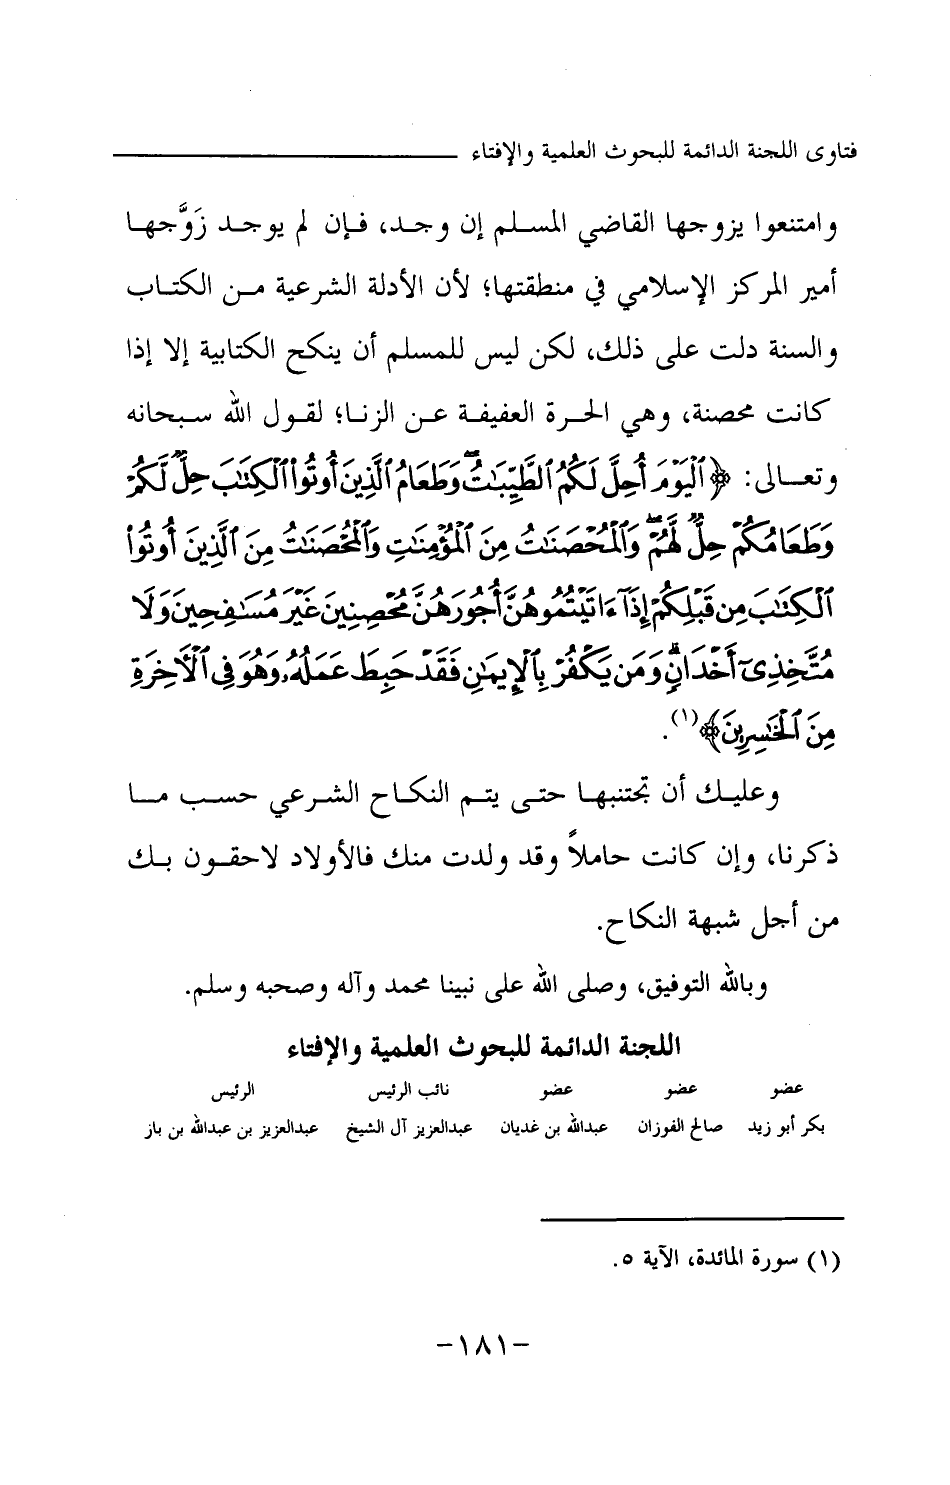 فتاوى اللجنة الدائمة للبحوث العلمية والإفتاء
وامتنعوا يزوجها القاضي المسلم إن وجد، فإن لم يوجد زَوَّجها
أمير المركز الإسلامي في منطقتها؛ لأن الأدلة الشرعية من الكتاب
والسنة دلت على ذلك، لكن ليس للمسلم أن ينكح الكتابية إلا إذا
كانت محصنة، وهي الحرة العفيفة عن الزنا؛ لقول الله سبحانه
وتعالى: ﴿ٱلۡيَوۡمَ أُحِلَّ لَكُمُ ٱلطَّيِّبَٰتُۖ وَطَعَامُ ٱلَّذِينَ أُوتُواْ ٱلۡكِتَٰبَ حِلّٞ لَّكُمۡ
وَطَعَامُكُمۡ حِلّٞ لَّهُمۡۖ وَٱلۡمُحۡصَنَٰتُ مِنَ ٱلۡمُؤۡمِنَٰتِ وَٱلۡمُحۡصَنَٰتُ مِنَ ٱلَّذِينَ أُوتُواْ
ٱلۡكِتَٰبَ مِن قَبۡلِكُمۡ إِذَآ ءَاتَيۡتُمُوهُنَّ أُجُورَهُنَّ مُحۡصِنِينَ غَيۡرَ مُسَٰفِحِينَ وَلَا
مُتَّخِذِيٓ أَخۡدَانٖۗ وَمَن يَكۡفُرۡ بِٱلۡإِيمَٰنِ فَقَدۡ حَبِطَ عَمَلُهُۥ وَهُوَ فِي ٱلۡأٓخِرَةِ
مِنَ ٱلۡخَٰسِرِينَ﴾(١).
وعليك أن تجتنبها حتى يتم النكاح الشرعي حسب ما
ذكرنا، وإن كانت حاملاً وقد ولدت منك فالأولاد لاحقون بك
من أجل شبهة النكاح.
وبالله التوفيق، وصلى الله على نبينا محمد وآله وصحبه وسلم.
اللجنة الدائمة للبحوث العلمية والإفتاء
عضو عضو عضو نائب الرئيس الرئيس
بكر أبو زيد صالح الفوزان عبدالله بن غديان عبدالعزيز آل الشيخ عبدالعزيز بن عبدالله بن باز
(١) سورة المائدة، الآية ٥.
-١٨١-